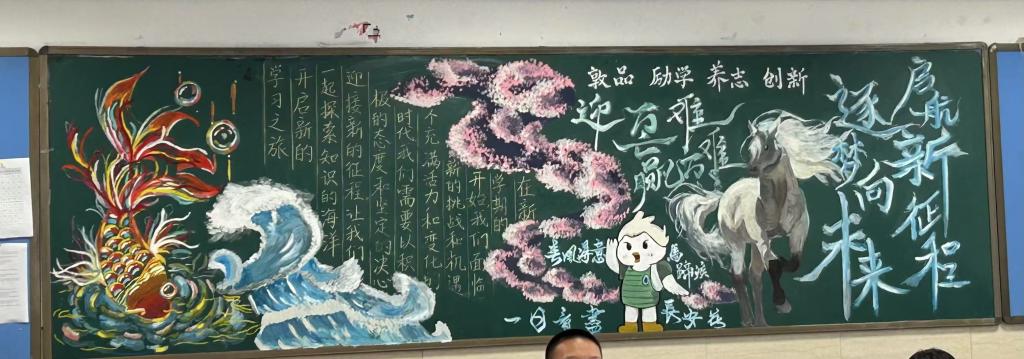 启航新征程
逐梦向未来
敦品 励学 养志 创新
迎万难
赢万难
春风得意
馬蹄疾
一日看盡
長安花
在新
学期的
开始我们面临
新的挑战和机遇
个充满活力和变化的
时代我们需要以积
极的态度和坚定的决心
迎接新的征程让我们
一起探索知识的海洋
开启新的
学习之旅